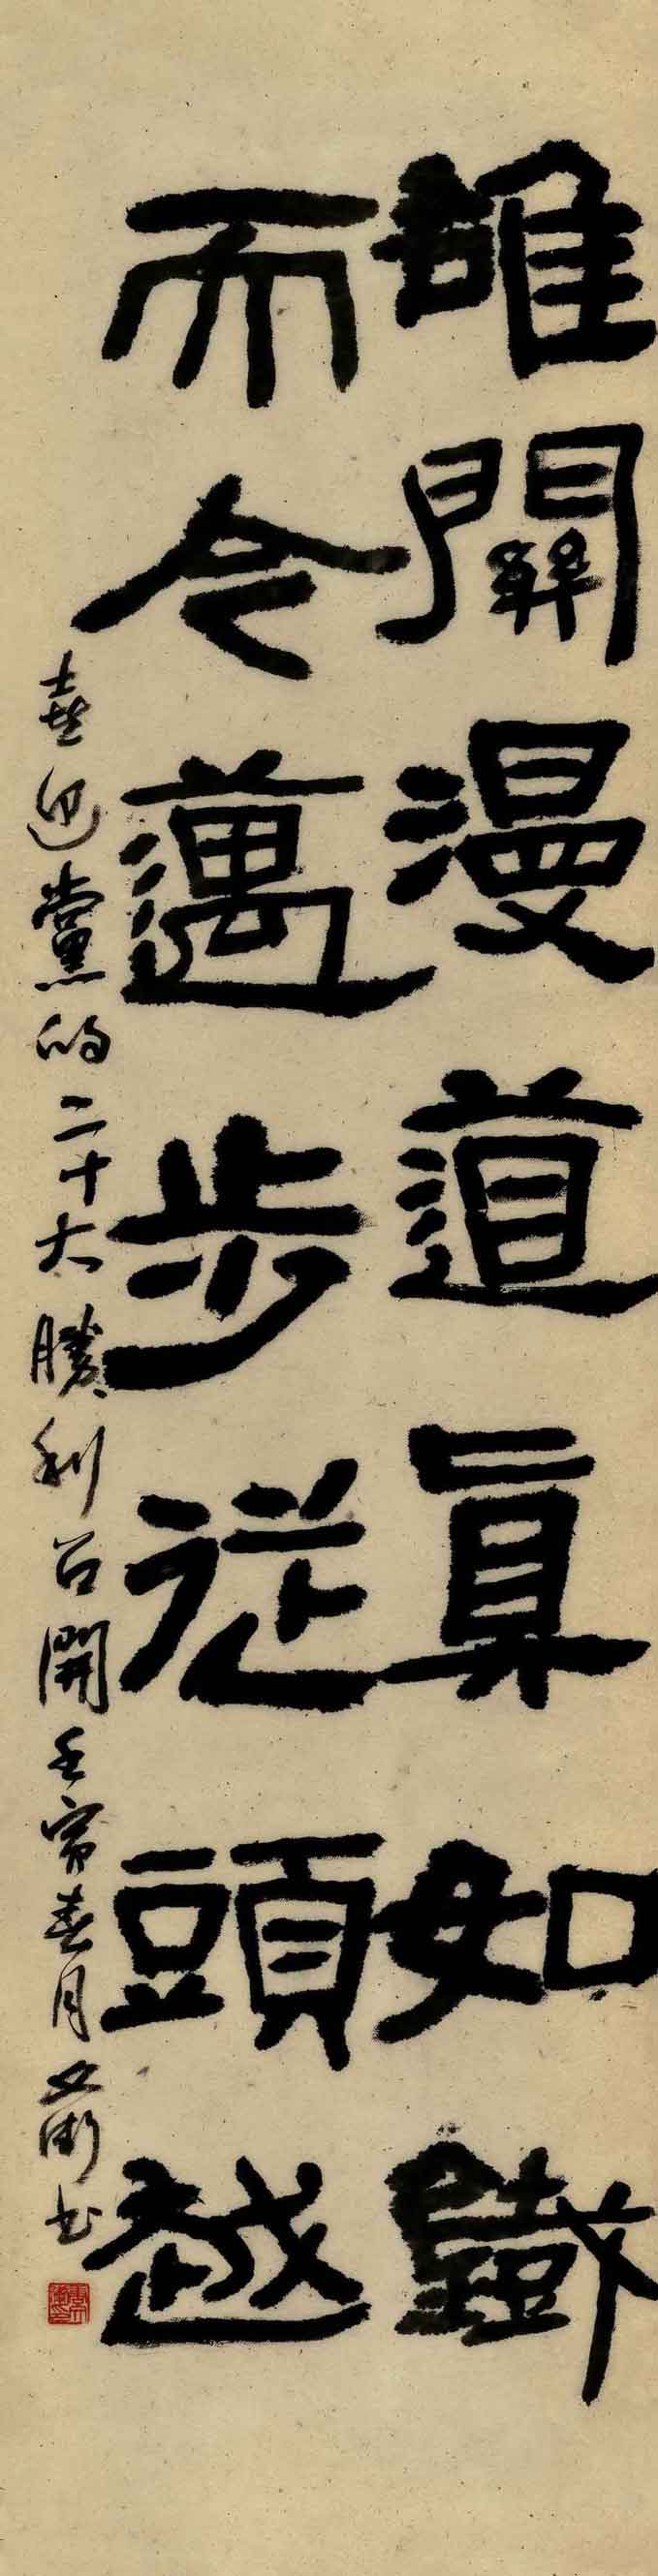 雄關漫道真如鐵
而今邁步從頭越
喜迎黨的二十大勝利召開壬寅春月